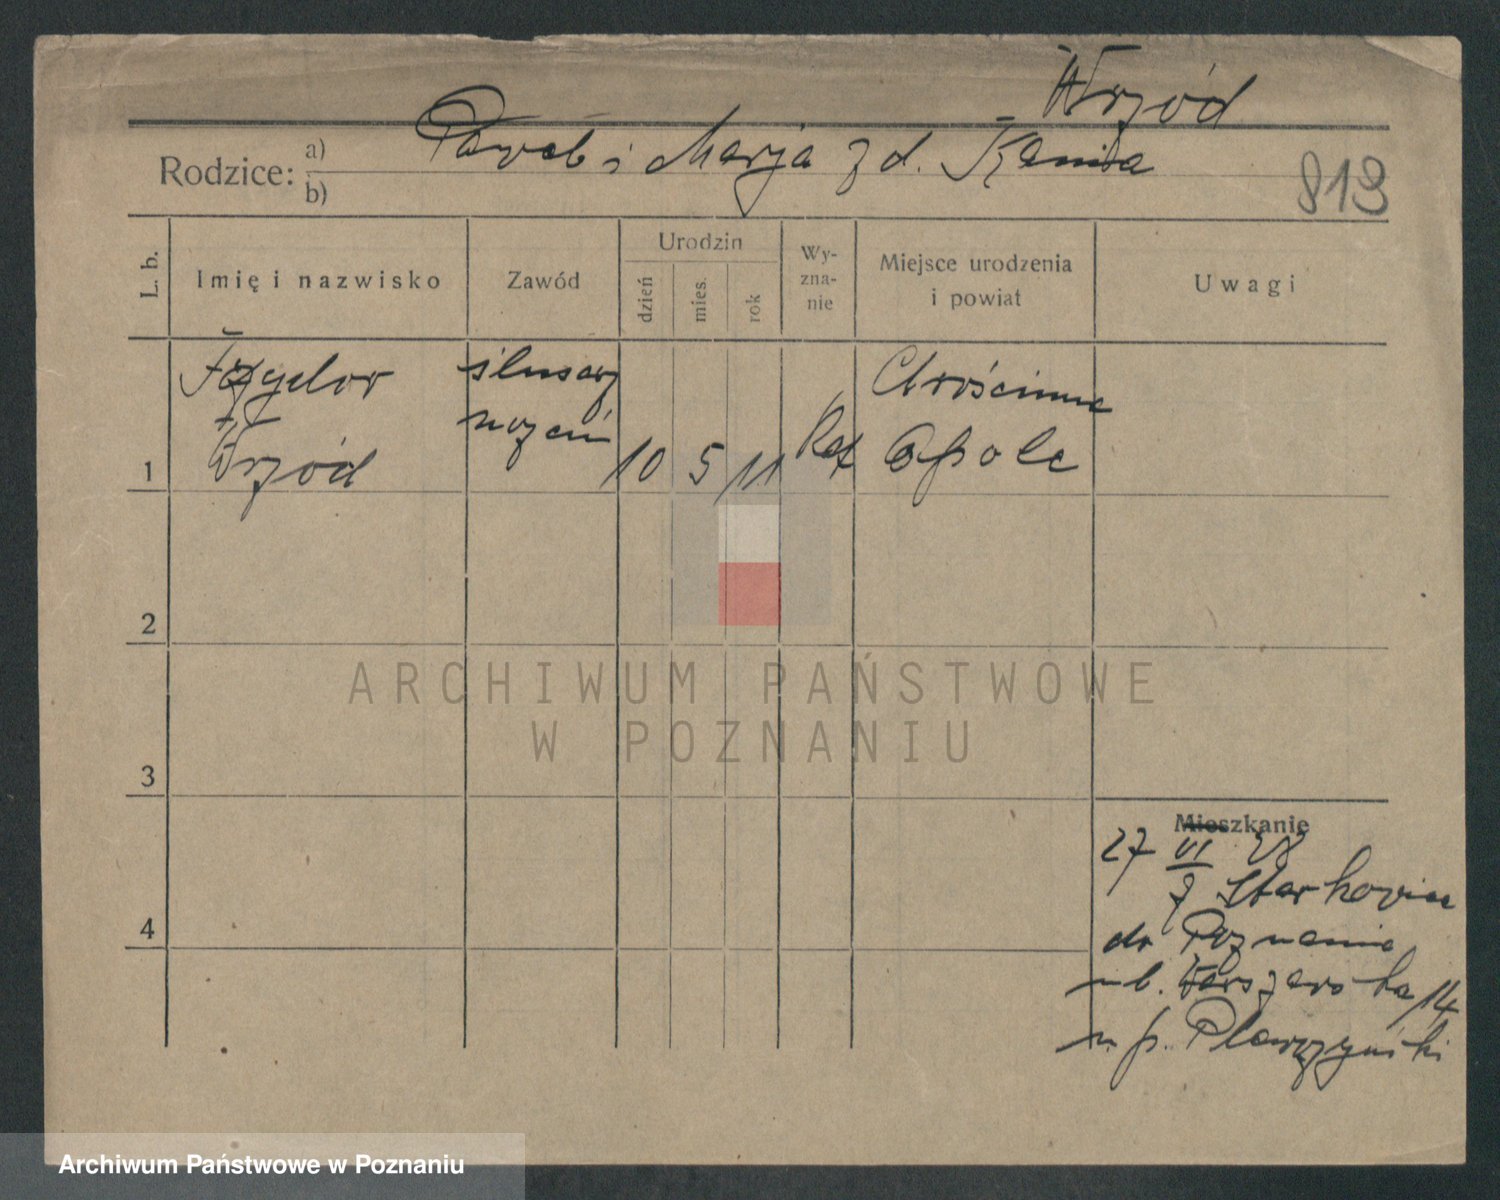 Wrzód
Rodzice: a) Paweł i Marja z d. Kania
b)
813
L. b.
Imię i nazwisko
Zawód
Urodzin
dzień
mies.
rok
Wy-
zna-
nie
Miejsce urodzenia
i powiat
Uwagi
Izydor
Wrzód
ślusarz
uczeń
1
10 5 11
Kat
Chróścinna
Opole
2
ARCHIWUM PAŃSTWOWE
W POZNANIU
3
Mieszkanie
27 VI 28
z Starkowiec
4
do Poznania
ul. Warszawska 14
u p. Pławczyński
Archiwum Państwowe w Poznaniu